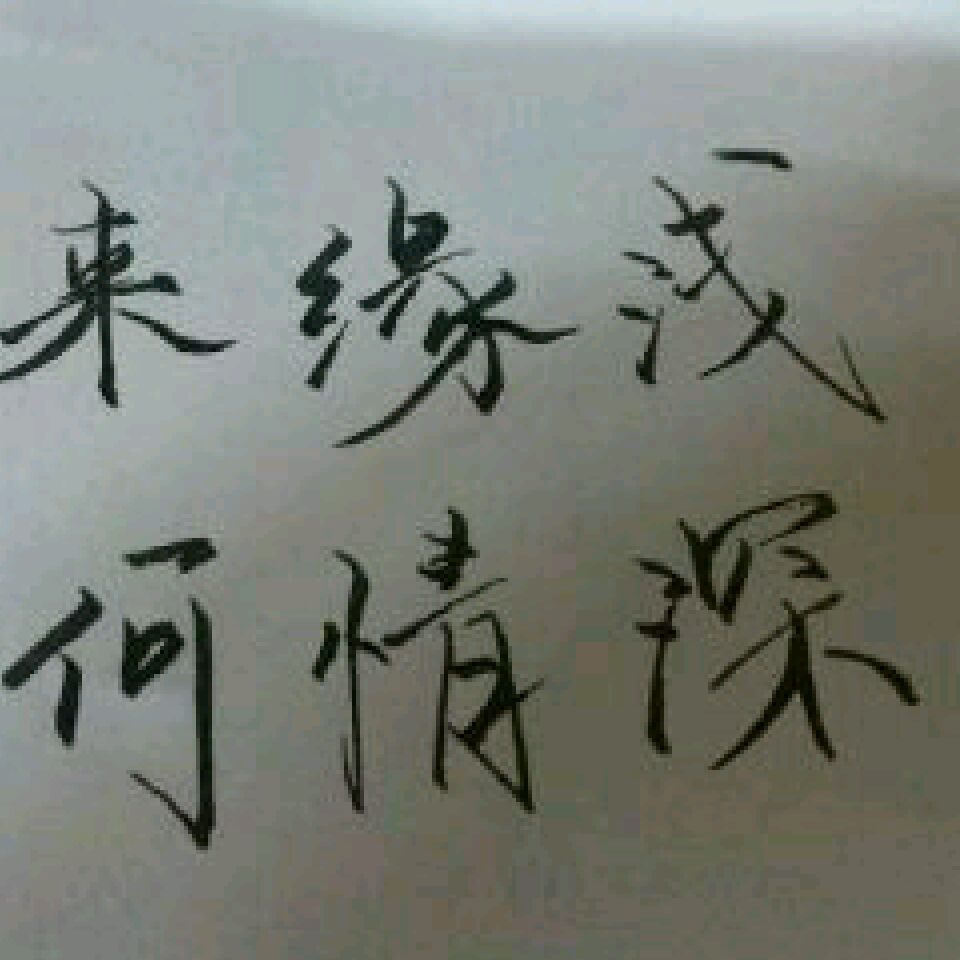 来缘浅
何情深